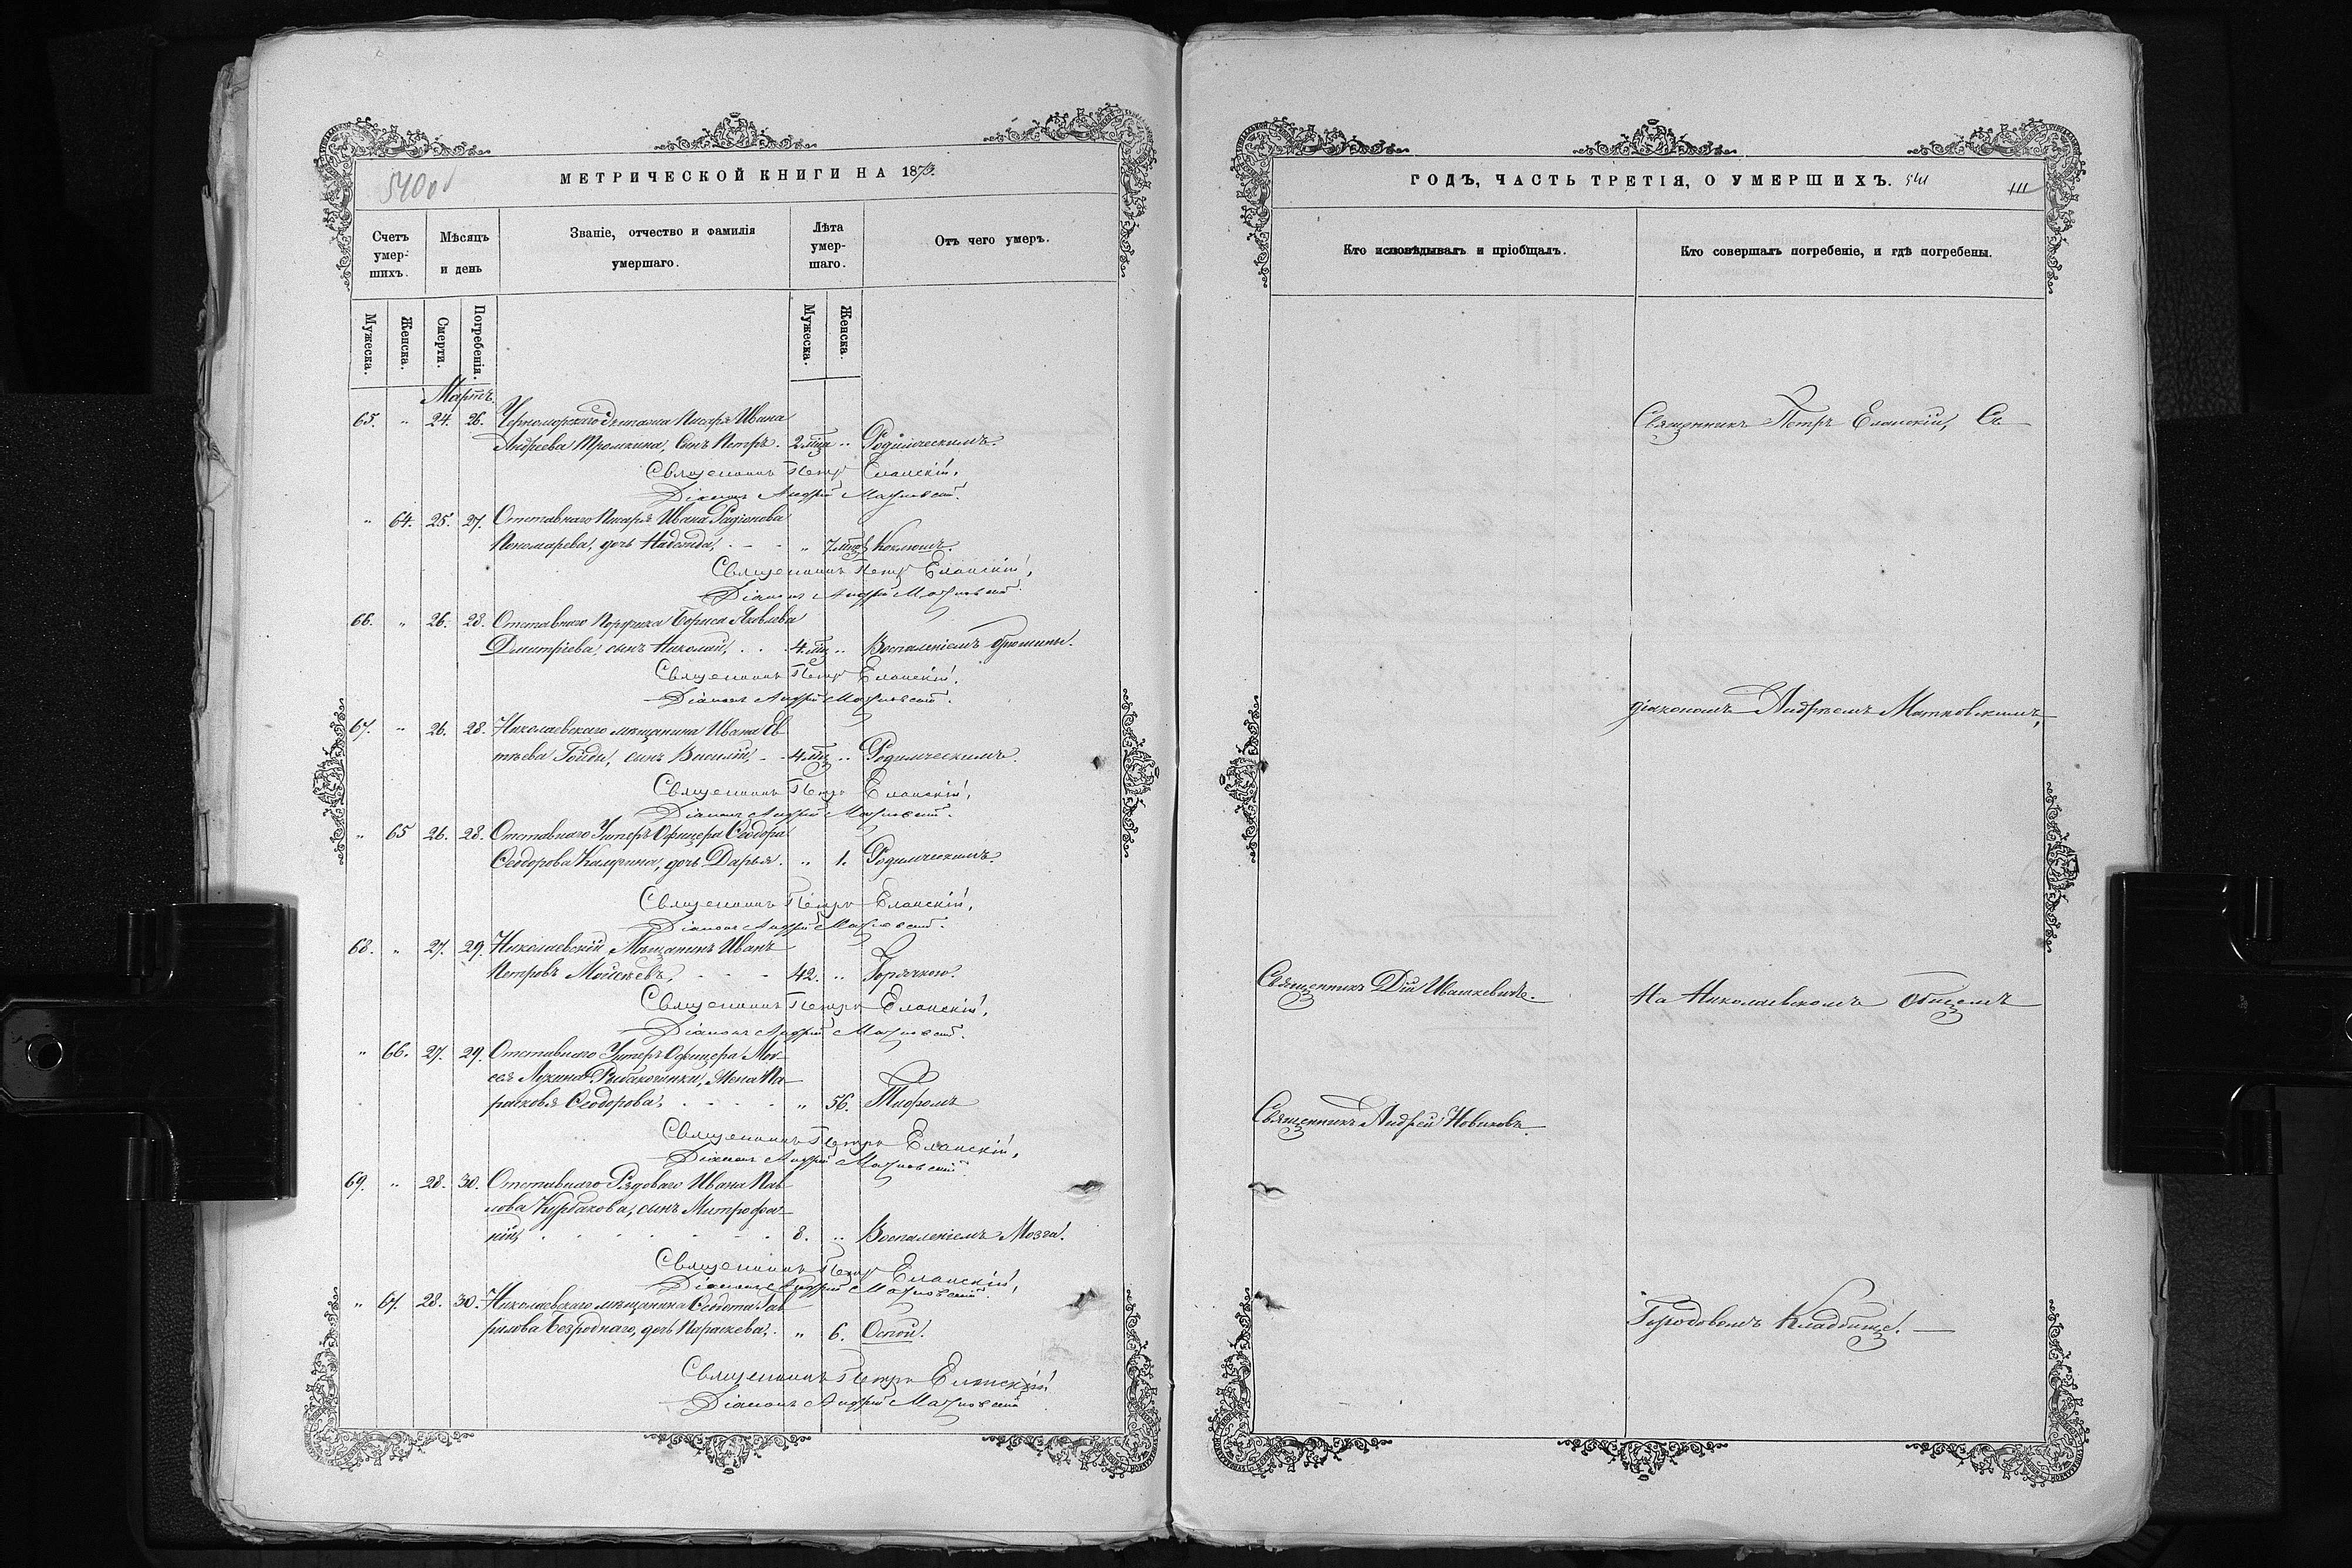 540об
МЕТРИЧЕСКОЙ КНИГИ НА 187
Счетъ умер-шихъ.
Мѣсяцъ и день
Званіе, отчество и фамилія умершаго.
Лѣта умер-шаго.
Отъ чего умеръ.
Мужеска.
Женска.
Смерти.
Погребенія.
Мужеска.
Женска.
Мартъ.
65. " 24. 26. Черноморскаго Писаря Ивана
Андреева сынъ Петръ. 2 мца " Родимическимъ.
Священникъ Петръ Еланскій,
Діаконъ Андрей Матковскій.
" 64. 25. 27. Отставнаго Писаря Ивана Радіонова
Пономарева, дочь Надежда, " 7 Коклюшъ.
Священникъ Петръ Еланскій,
Діаконъ Андрей Матковскій.
66. " 26. 28. Отставнаго Бориса Яковлева
Дмитріева, сынъ Николай, 4 мц " Воспаленіемъ брюшины.
Священникъ Петръ Еланскій,
Діаконъ Андрей Матковскій.
67. " 26. 28. Николаевскаго мѣщанина Ивана Ев
сынъ Василій, 4 мц " Родимческимъ.
Священникъ Петръ Еланскій,
Діаконъ Андрей Матковскій.
" 65 26. 28. Отставнаго Унтеръ Офицера Ѳеодора
Ѳеодорова дочь Дарья. " 1. Родимческимъ.
Священникъ Петръ Еланскій,
Діаконъ Андрей Матковскій.
68. " 27. 29. Николаевскій Мѣщанинъ Иванъ
Петровъ Моисѣевъ, 42. " Горячкою.
Священникъ Петръ Еланскій,
Діаконъ Андрей Матковскій.
" 66. 27. 29. Отставнаго Унтеръ Офицера Мои-
сея Лукина жена Па-
расковья Ѳеодорова, " 56. Тифомъ
Священникъ Петръ Еланскій,
Діаконъ Андрей Матковскій
69. " 28. 30. Отставнаго Рядоваго Ивана Пав
лова Курбакова, сынъ Митрофа-
ній, 8. " Воспаленіемъ Мозга.
Священникъ Петръ Еланскій,
Діаконъ Андрей Матковскій
" 67. 28. 30. Николаевскаго мѣщанина Ѳеодота Гав
рилова Безроднаго, дочь Параскева, " 6. Оспой.
Священникъ Петръ Еланскій
Діаконъ Андрей Матковскій
ГОДЪ, ЧАСТЬ ТРЕТІЯ, О УМЕРШИХЪ. 541
Кто исповѣдывалъ и пріобщалъ.
Кто совершалъ погребеніе, и гдѣ погребены.
Священникъ Петръ Еланскій, Съ
діакономъ Андреемъ Матковскимъ,
Священникъ Дій Ивашкевичъ.
На Николаевскомъ Общемъ
Священникъ Андрей Новиковъ.
Городовомъ Кладбище.